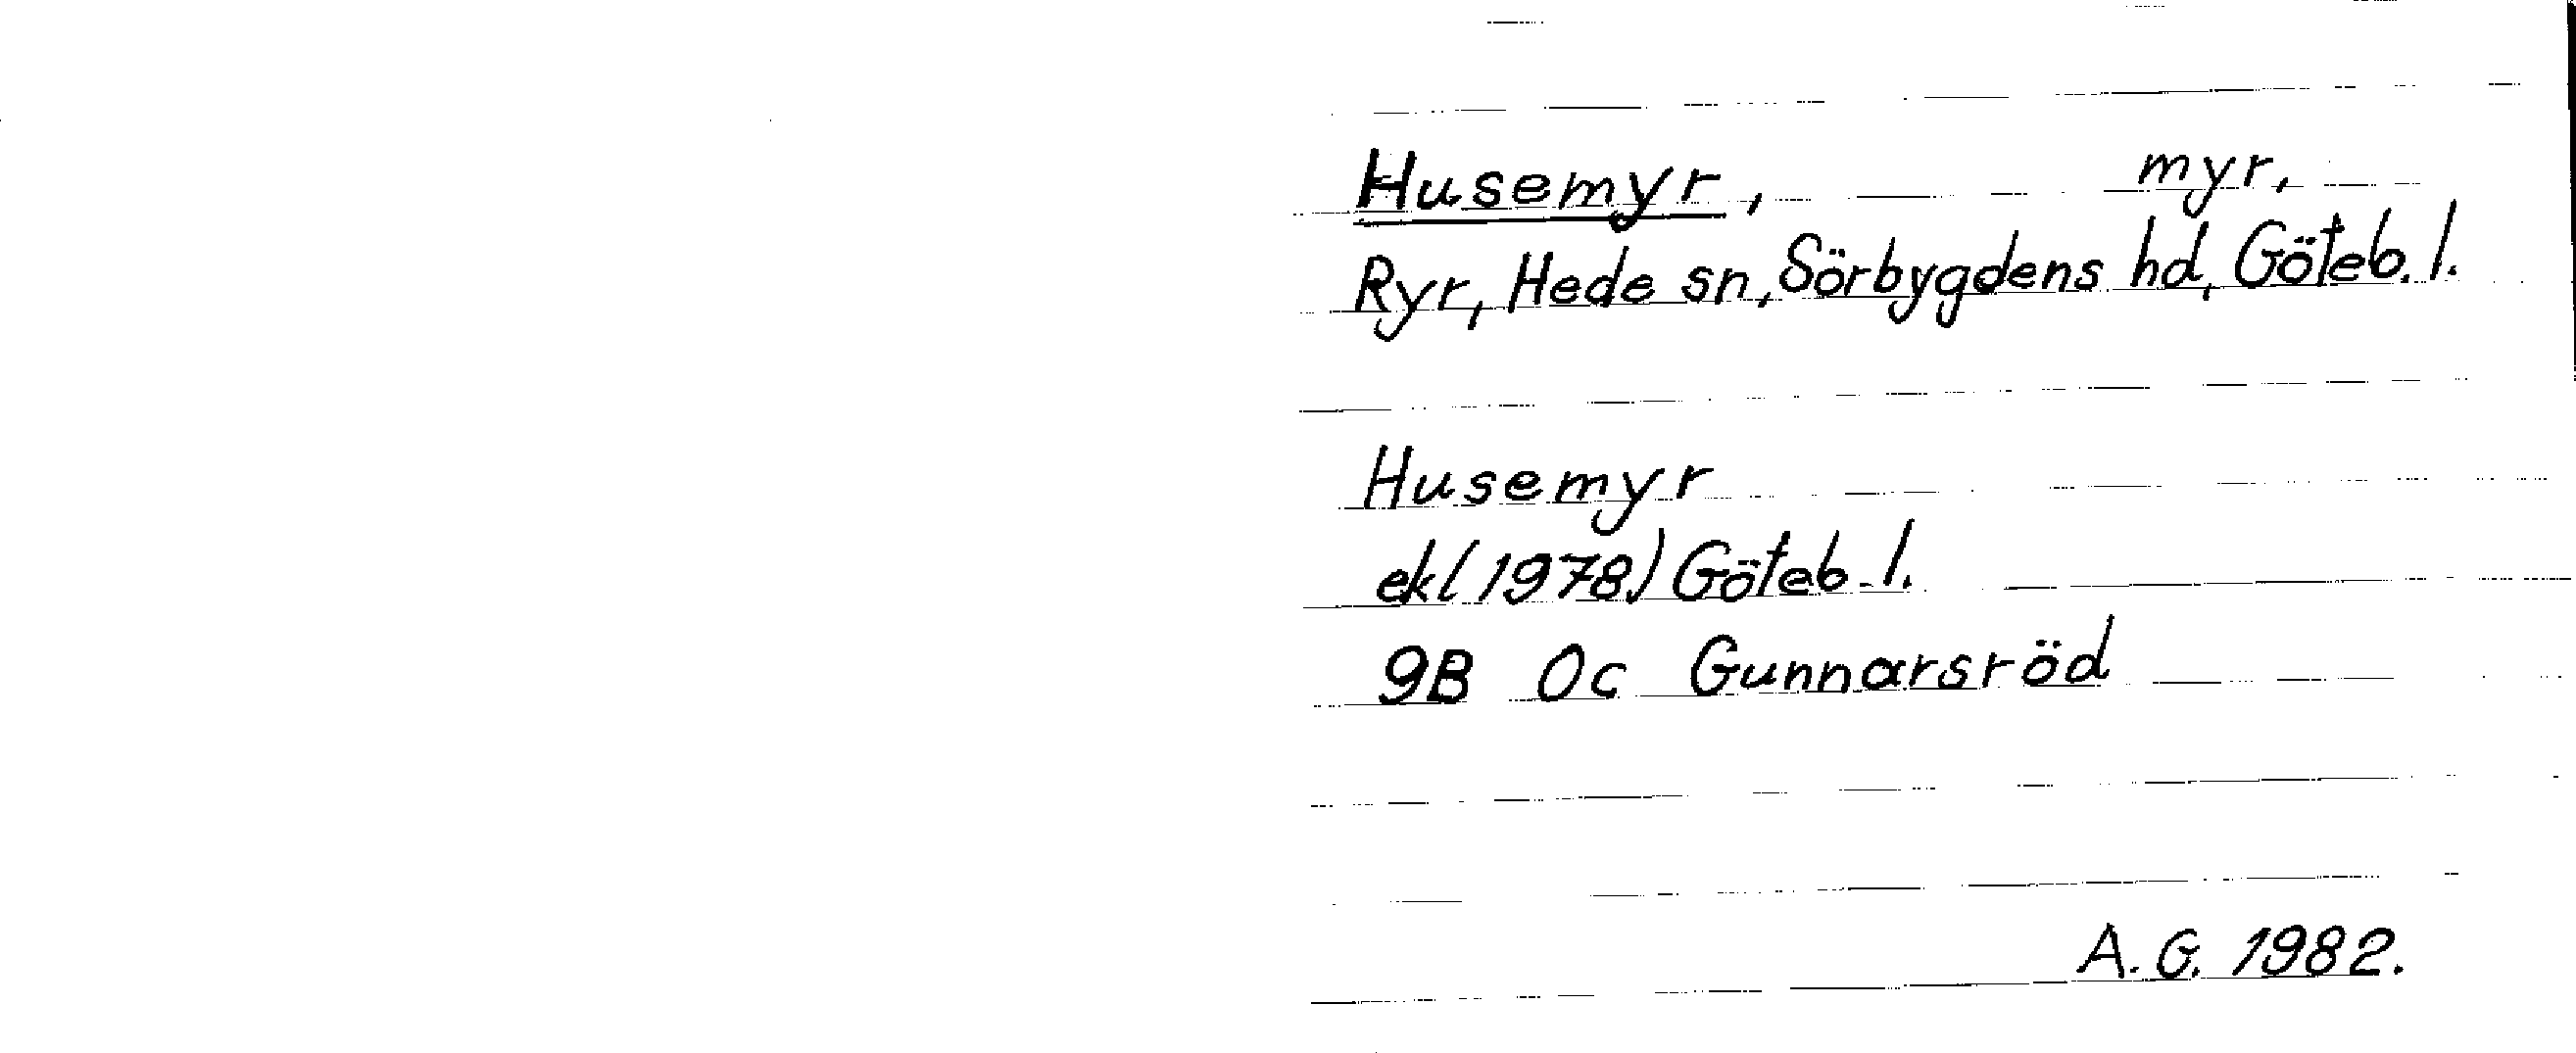 Husemyr, myr,
Ryr, Hede sn, Sörbygdens hd, Göteb. l.
Husemyr
ek(1978) Göteb. l.
9B Oc Gunnarsröd
A. G. 1982.